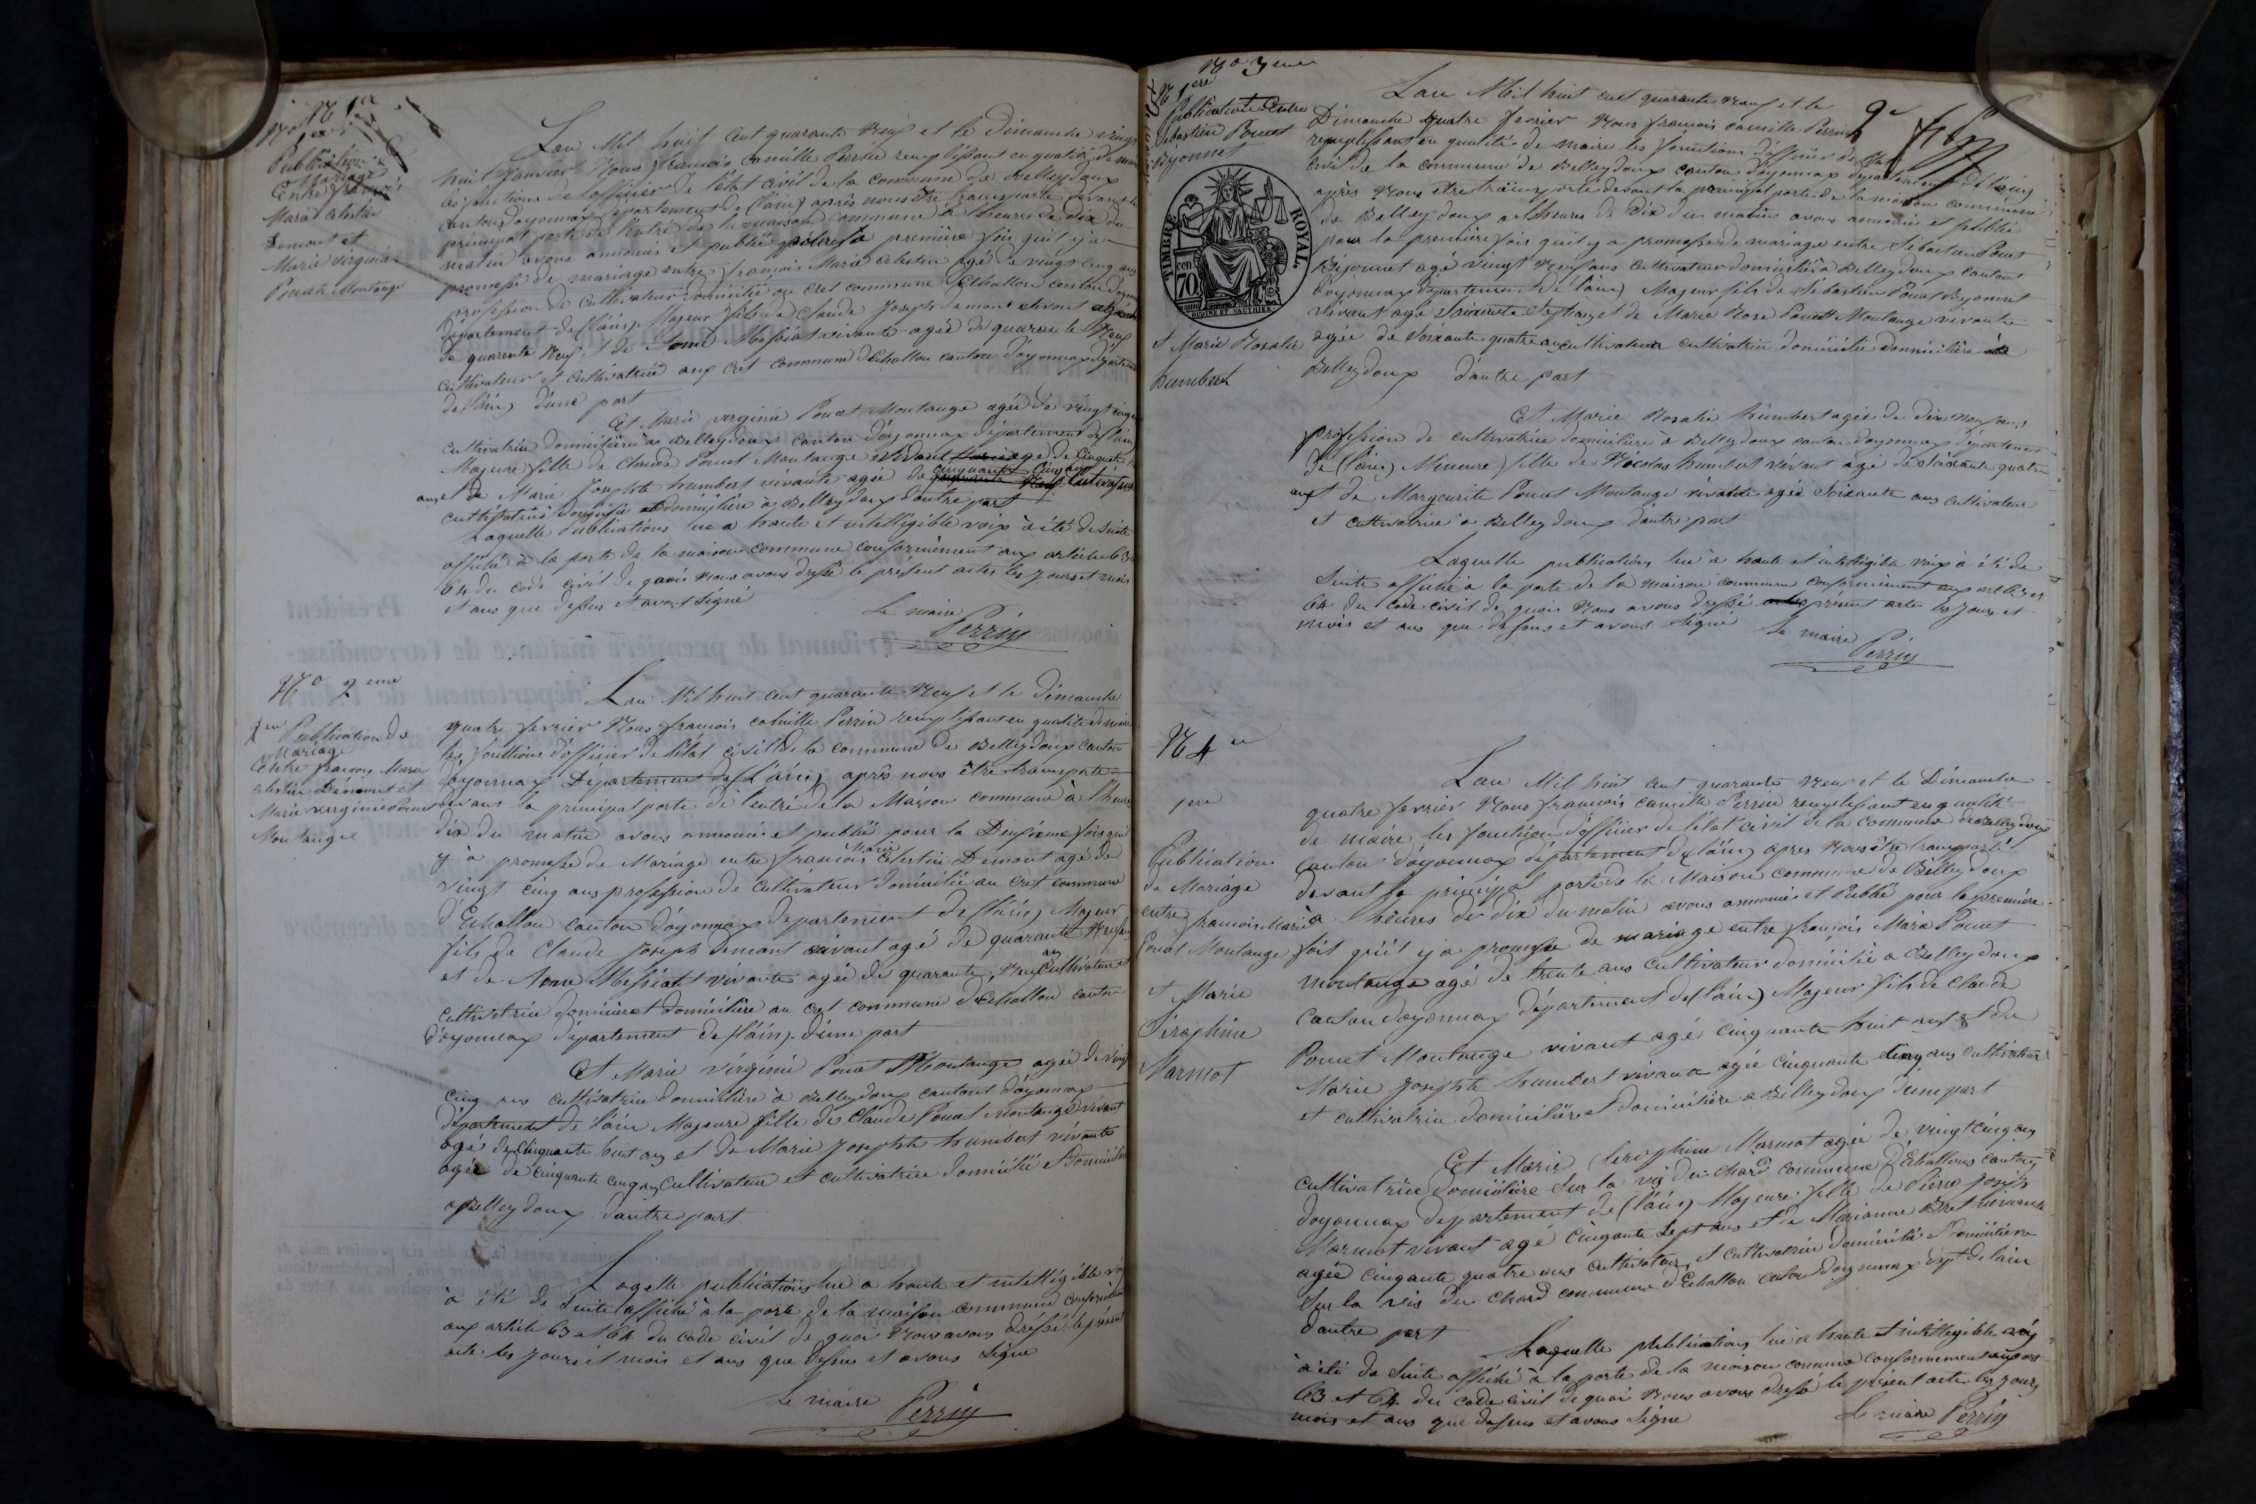 N° 1er
1ère
Publication
de Mariage
Entre françois
Marie Célestin
Demont et
Marie virginie
Poncet Montange
L'an Mil huit cent quarante Neuf et le Dimanche vingt
huit Janvier Nous françois Camille Perrin remplissant en qualité de maire
les fonctions de l'officier de l'état civil de la commune de Belleydoux
canton d'oyonnax département de (l'ain) après nous être transporté devant la
principal porte de l'entrée de la maison commune à l'heure de dix du
matin avons annoncé et publié pour la première fois qu'il y a
promesse de mariage entre françois Marie Célestin agé de vingt cinq ans
profession de cultivateur domicilié au cret commune d'Echallon canton d'oyonnax
département de (l'ain) Majeur fils de Claude Joseph demont vivant agé
de quarante Neuf et de Anne Messiat vivante agée de quarante Neuf
cultivateur et cultivatrice aux cret commune d'Echallon canton d'oyonnax département
de (l'ain) d'une part
Et Marie virginie Poncet Montange agée de vingt cinq ans
cultivatrice domicilière à Belleydoux canton d'oyonnax département de l'ain
Majeure fille de Claude Poncet Montange vivant agé de cinquante
ans et de Marie Josephte humbert vivante agée de cinquante cinq ans cultivateur
cultivatrice domicilié et domicilière à Belleydoux d'autre part
Laquelle Publications lue a haute et intelligible voix à été de suite
affiché à la porte de la maison commune conformément aux article 63
64 du code civil de quoi nous avons dressé le présent acte les jours et mois
et ans que dessus et avons signé
Le maire
Perrin
N° 2eme
Publication de
Mariage
Entre françois Marie
Célestin Demont et
Marie virginie Poncet
Montange
L'an Mil huit cent quarante Neuf et le Dimanche
quatre fevrier Nous françois Camille Perrin remplissant en qualité de maire
les fonctions d'officier de l'état civil de la commune de Belleydoux canton
d'oyonnax Département de (l'ain) après nous être transporté
devant la principal porte de l'entrée de la Maison commune à l'heure
dix du matin avons annoncé et publié pour la Deuxième fois qu'il
y à promesse de Mariage entre françois Marie Célestin Demont agé de
vingt cinq ans profession de cultivateur domicilié au cret commune
d'Echallon canton d'oyonnax departement de (l'ain) Majeur
fils de Claude Joseph demont vivant agé de quarante Neuf
et de Anne Messiat vivante agée de quarante Neuf ans cultivateur et
cultivatrice domicilié et domicilière au cret commune d'Echallon canton
d'oyonnax département de (l'ain) d'une part
Et Marie virginie Poncet Montange agée de vingt
cinq ans cultivatrice domicilière à Belleydoux canton d'oyonnax
département de l'ain Majeure fille de Claude Poncet Montange vivant
agé de cinquante huit ans et de Marie Josephte humbert vivante
agée de cinquante cinq ans cultivateur et cultivatrice domicilié et domicilière
a Belleydoux d'autre part
Laquelle publications lue a haute et intelligible voix
à été de suite affiché à la porte de la maison commune conformément
aux article 63 et 64 du code civil de quoi Nous avons dressé le présent
acte les jours et mois et ans que dessus et avons signé
Le maire Perrin
N° 3eme
1ere
Publication Entre
Sebastien Poncet
Byonnet
TIMBRE ROYAL.
70 cen
et Marie Rosalie
humbert
2e
L'an Mil huit cent quarante Neuf et le
Dimanche quatre fevrier Nous francois camille Perrin
remplissant en qualité de maire les fonctions d'officier de l'état
civil de la commune de Belleydoux canton d'oyonnax département de (l'ain)
après Nous être transporté devant la principal porte de la maison commune
de Belleydoux a l'heures de Dix du matin avons annoncé et publié
pour la première fois qu'il y a promesse de mariage entre Sebastien Poncet
Byonnet agé vingt Neuf ans cultivateur domicilié à Belleydoux canton
d'oyonnax département de (l'ain) Majeur fils de Sebastien Poncet Byonnet
vivant agé soixante sept ans et de Marie Rose Poncet Montange vivante
agée de soixante quatre ans cultivateur cultivatrice domicilié domicilière à
Belleydoux d'autre part
Et Marie Rosalie humbert agée de dix neuf ans
profession de cultivatrice domicilière à Belleydoux canton d'oyonnax département
de (l'ain) Mineure fille de Nicolas humbert vivant agé de soixante quatre
ans et de Marguerite Poncet Montange vivante agée soixante ans cultivateur
et cultivatrice à Belleydoux d'autre part
Laquelle publications lue à haute et intelligible voix à été de
suite affiché à la porte de la maison commune conformément aux articles
64 du code civil de quoi Nous avons dressé présent acte les jours et
mois et ans que dessus et avons signé
Le maire Perrin
N 4e
1ere
Publication
de Mariage
entre
françois Marie
Poncet Montange
et Marie
Séraphine
Marmot
L'an Mil huit cent quarante Neuf et le Dimanche
quatre fevrier Nous francois camille Perrin remplissant en qualité
de maire les fonctions d'officier de l'état civil de la commune de Belleydoux
canton d'oyonnax département de (l'ain) apres Nous être transporté
devant la principal porte de la Maison commune de Belleydoux
à heures de dix du matin avons annoncé et Publié pour la première
fois qu'il y a promesse de mariage entre françois Marie Poncet
Montange agé de trente ans cultivateur domicilié a Belleydoux
canton d'oyonnax département de (l'ain) Majeur fils de Claude
Poncet Montange vivant agé cinquante huit ans et de
Marie Josephte humbert vivante agée cinquante cinq ans cultivateur
et cultivatrice domicilié et domicilière à Belleydoux d'une part
Et Marie Seraphine Marmot agée de vingt cinq ans
cultivatrice domicilière sur la vie du chard commune d'Echallon canton
d'oyonnax departement de (l'ain) Majeure fille de Pierre Joseph
Marmot vivant agé cinquante sept ans et de Marianne Bret vivante
agée cinquante quatre ans cultivateur et cultivatrice domicilié et domicilière
sur la vie du chard commune d'Echallon canton d'oyonnax dept de lain
d'autre part
Laquelle publications lue a haute et intelligible voix
à été de suite affiché à la porte de la maison commune conformément aux art
63 et 64 du code civil de quoi Nous avons dressé le présent acte les jours
mois et ans que dessus et avons signé
Le maire Perrin